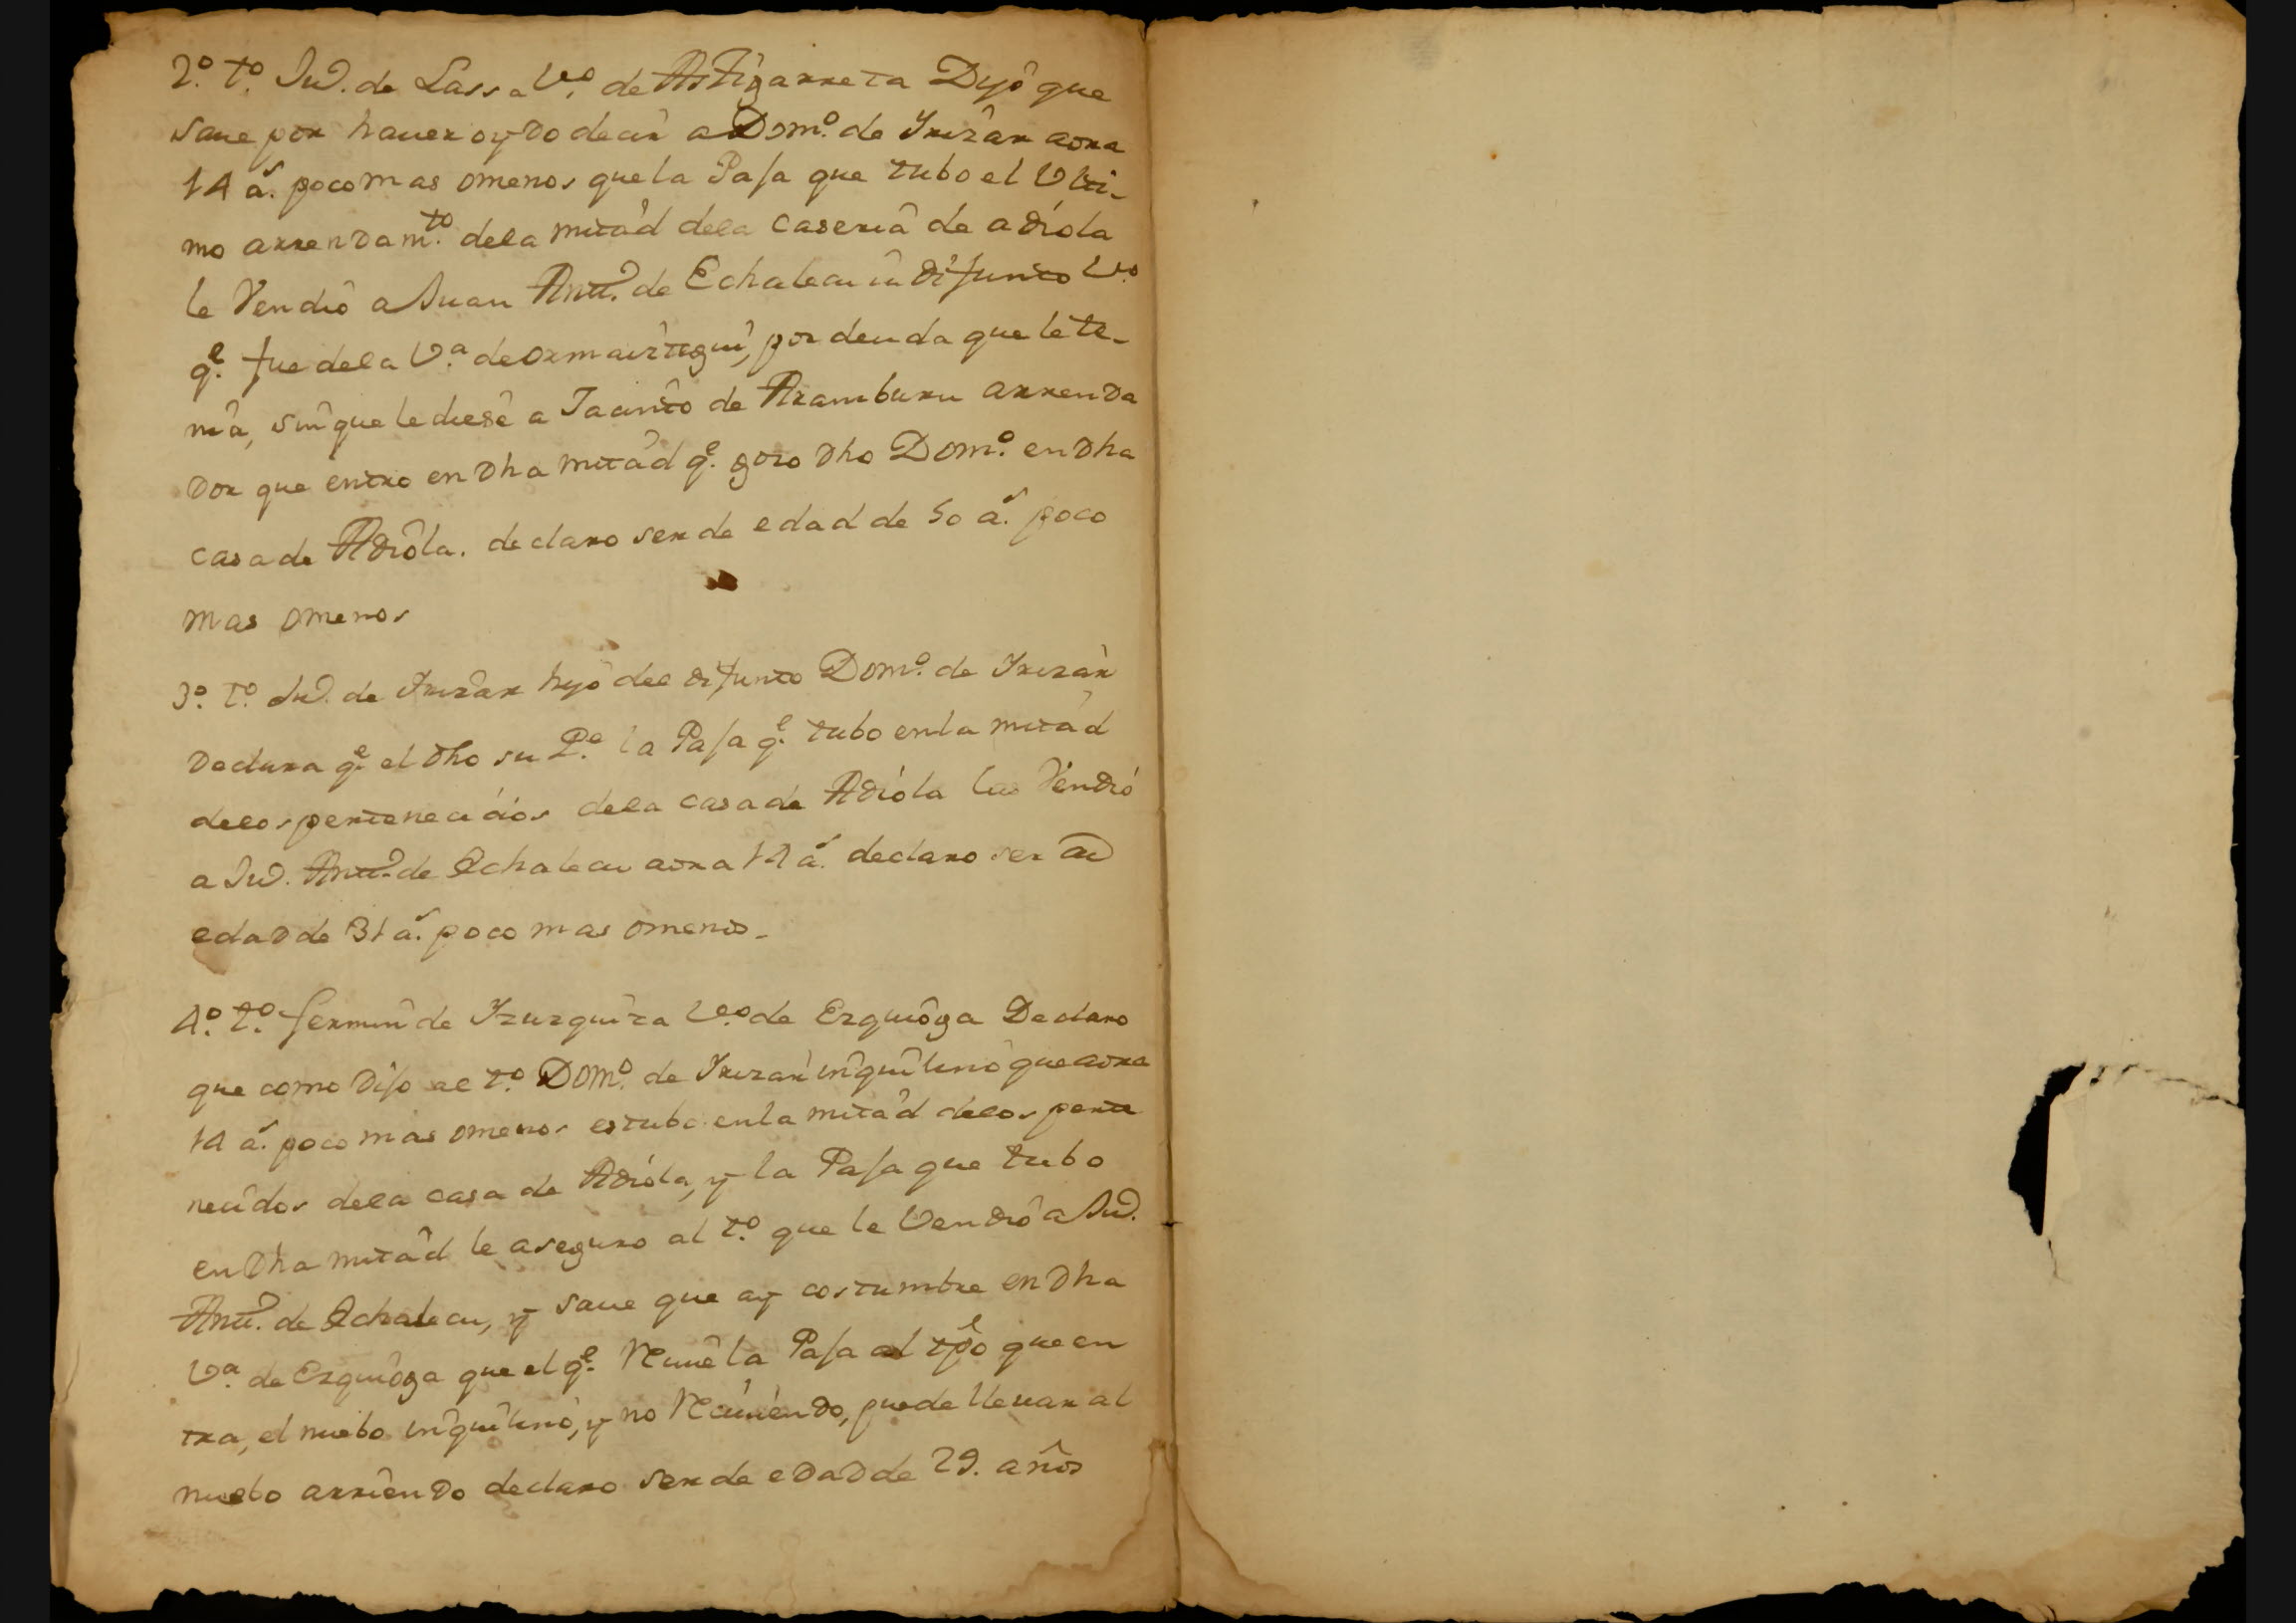 2º. tº. Juº. de Lassa Vº. de Astigarreta Dijo que
save por haver oydo decir a Domº. de Yrizar aora
14 a.s poco mas o menos que la Paja que tubo el Ulti-
mo arrendam.to de la mitad de la caseria de adiola
le Vendio a Juan Antt.º de Echalecu difunto Vº
q.e fue de la V.a de ormaiztegui, por deuda que le te-
nia, sin que le diese a Jacinto de Aramburu arrenda
dor que entro en dha mitad q.e gozo dho Domº. en dha
casa de Adiola. declaro ser de edad de 50 a.s poco
mas o menos
3º. tº. Juº. de Yrizar hijo del difunto Domº. de Yrizar
declara q.e el dho su P.e la Paja q.e tubo en la mitad
de los pertenecidos de la casa de Adiola las Vendio
a Juº. Antt.º de Echalecu aora 14 a.s declaro ser de
edad de 31 a.s poco mas o menos.
4º. tº. fermin de Yzurquiza Vº. de Ezquioga Declaro
que como dijo al tº. Domº. de Yrizar inquilino que aora
14 a.s poco mas o menos estubo en la mitad de los perte
necidos de la casa de Adiola, y la Paja que tubo
en dha mitad le aseguro al tº. que le Vendio a Juº.
Antt.º de Echalecu, y save que ay costumbre en dha
V.a de Ezquioga que el q.e Recive la Paja al tpo que en
tra, el nuebo inquilino, y no Reciviendo, puede llevar al
nuebo arriendo declaro ser de edad de 29. años